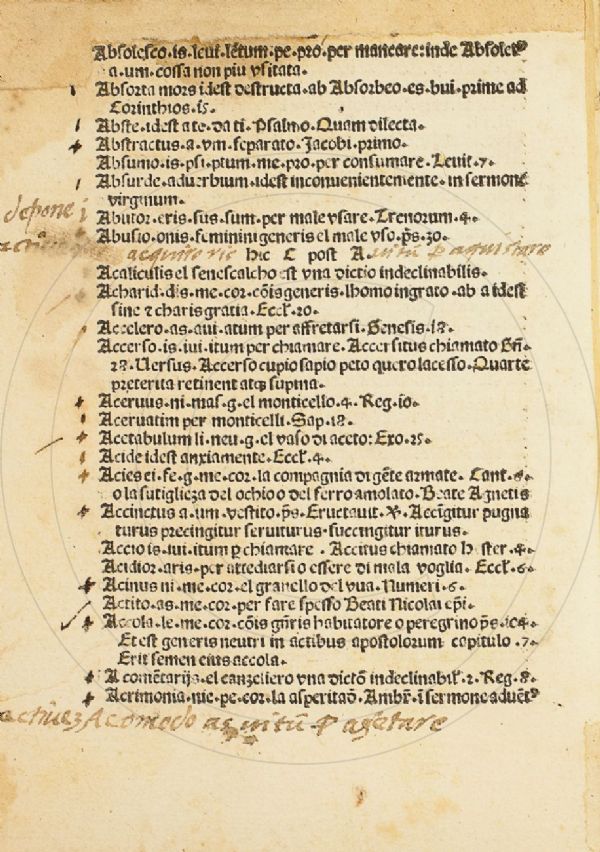 Absolesco.is.leui.letum.pe.pro.per mancare:inde Absolet⁹
a.um.cossa non piu vsitata.
Absorta mors idest destructa.ab Absorbeo.es.bui.prime ad
Corinthios.i5.
Abste.idest a te.da ti.Psalmo.Quam dilecta.
Abstractus.a.vm.separato.Jacobi primo.
Absumo.is.psi.ptum.me.pro.per consumare.Leuit.7.
Absurde.aduerbium.idest inconuenientemente.in sermone
virginum.
depone i Abutor.eris.sus.sum.per male vsare.Trenorum.4.
Abusio.onis.feminini generis el male vso.p̄s.30.
hic C post A
Acaliculis el senescalcho est vna dictio indeclinabilis.
Acharid.dis.me.cor.cōis generis.lhomo ingrato.ab a idest
sine ⁊ charis gratia.Eccl̄.20.
Accelero.as.aui.atum per affretarsi.Genesis.18.
Accerso.is.iui.itum per chiamare.Accersitus chiamato Gn̄.
28.Uersus.Accerso cupio sapio peto quero lacesso.Quarte
preterita retinent atq; supina.
Aceruus.ni.mas.g.el monticello.4.Reg.io.
Aceruatim per monticelli.Sap.18.
Acetabulum li.neu.g.el vaso di aceto:Exo.25.
Acide idest anxiamente.Eccl̄.4.
Acies ei.fe.g.me.cor.la compagnia di gēte armate. Cant.6.
o la sutiglieza del ochio o del ferro amolato.Beate Agnetis
Accinctus a.um.vestito.p̄s. Eructauit.℣.Accīgitur pugna
turus precingitur seruiturus.succingitur iturus.
Accio is.iui.itum ꝑ chiamare.Accitus chiamato ster.4.
Acidior.aris.per attediarsi o essere di mala voglia. Eccl̄.6.
Acinus ni.me.cor.el granello del vua.Numeri.6.
Actito.as.me.cor.per fare spesso Beati Nicolai ep̄i.
Accola.le.me.cor.cōis gn̄ris habitatore o peregrino p̄s.104.
Et est generis neutri in actibus apostolorum capitulo.7.
Erit semen eius accola.
A comētarijs.el canzeliero vna dictō indeclinabil̄.2.Reg.8.
Acrimonia.nie.pe.cor.la asperitaō.Ambr̄.ī sermone aduēt⁹
Acomodo as uitū ꝑ asetare